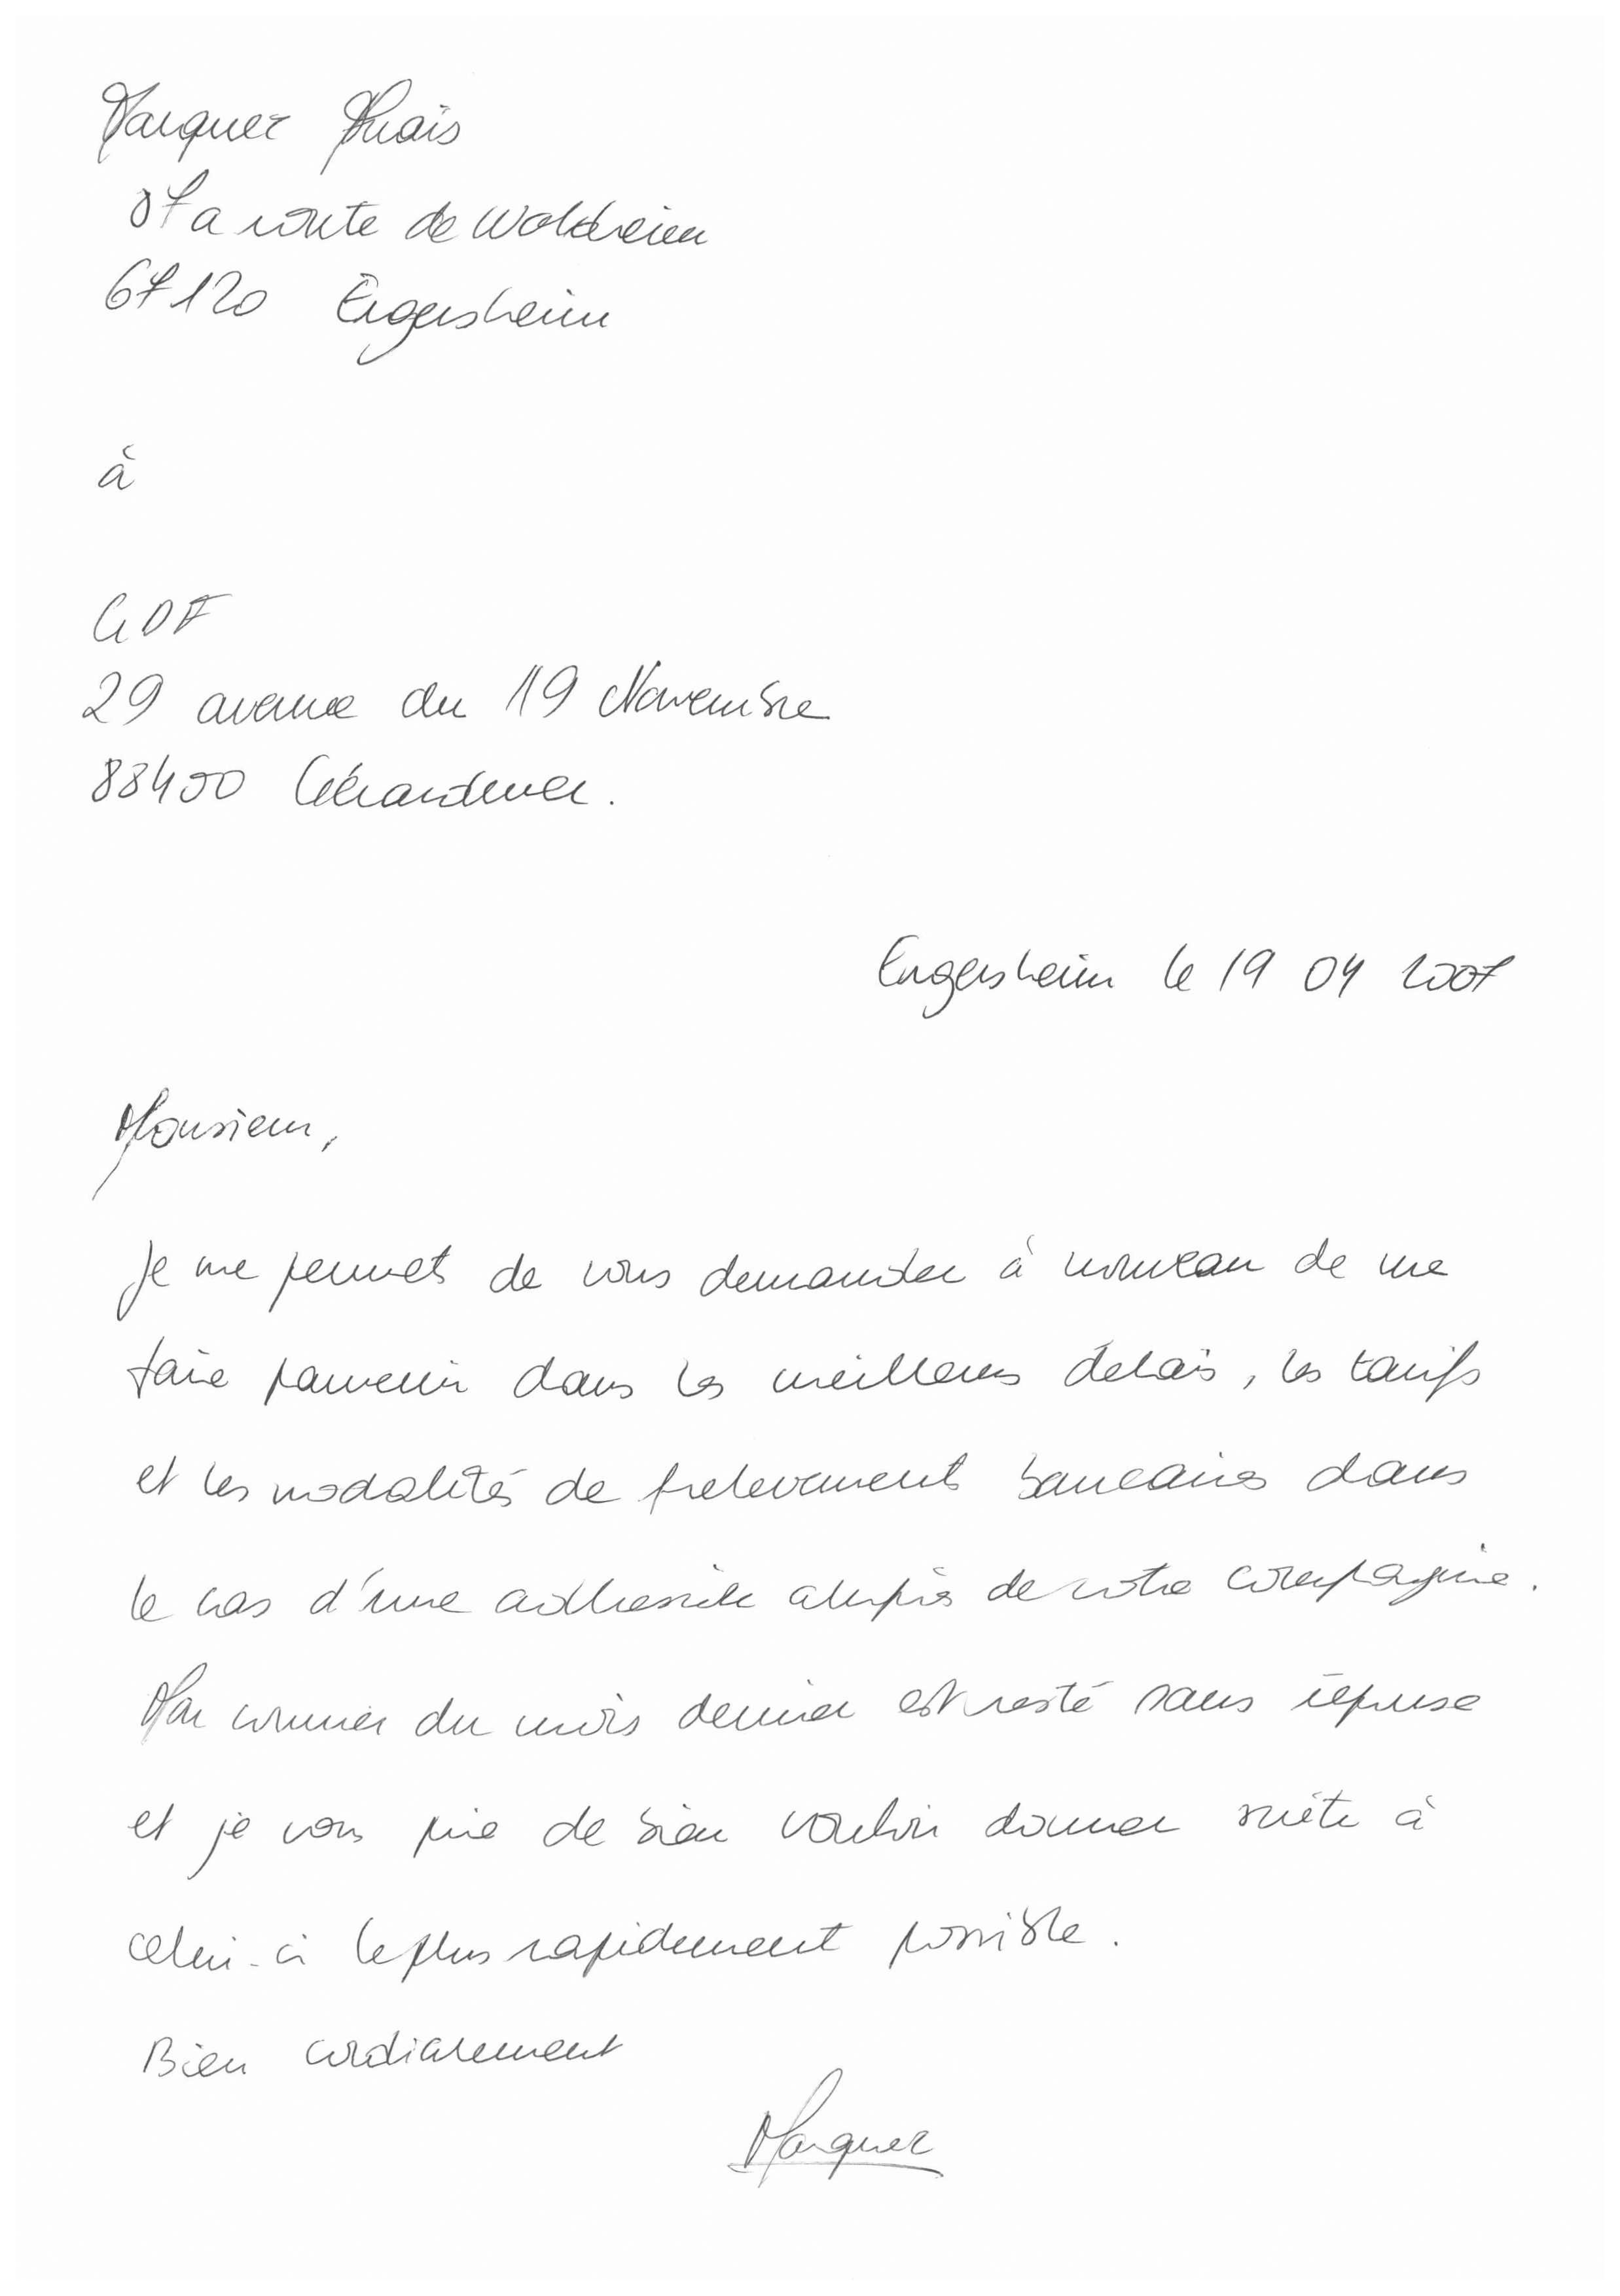 Marquer Anaïs
07a route de Wolxheim
67120 Ergersheim
à
GDF
29 avenue du 19 Novembre
88400 Gérardmer.
Ergersheim le 19 04 2007
Monsieur,
Je me permets de vous demander à nouveau de me
faire parvenir dans les meilleurs délais, les tarifs
et les modalités de prelevements bancaires dans
le cas d'une auprès de votre compagnie.
Mon courrier du mois dernier est resté sans réponse
et je vous prie de bien vouloir donner suite à
celui-ci le plus rapidement possible.
Bien cordialement
Marquer